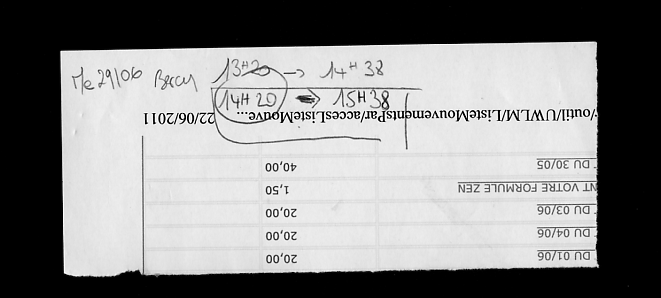 Me 29/06 Bercy 13H20 → 14H38
14H20 → 15H38
/outil/UWLM/ListeMouvementsPar/accesListeMouve... 22/06/2011
DU 30/05 40,00
NT VOTRE FORMULE ZEN 1,50
DU 03/06 20,00
DU 04/06 20,00
DU 01/06 20,00